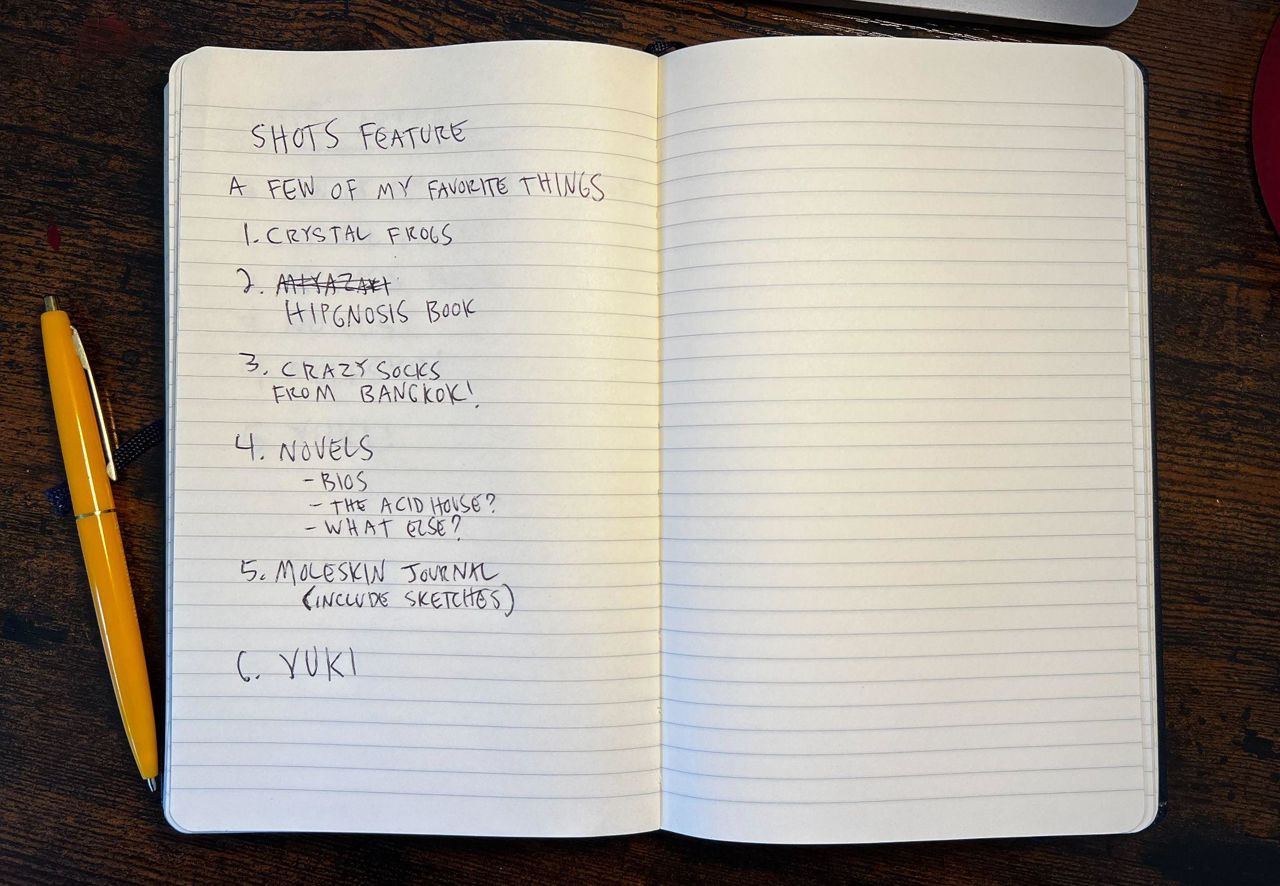 SHOTS FEATURE
A FEW OF MY FAVORITE THINGS
1. CRYSTAL FROGS
2. MIYAZAKI
HIPGNOSIS BOOK
3. CRAZY SOCKS
FROM BANGKOK!
4. NOVELS
- BIOS
- THE ACID HOUSE?
- WHAT ELSE?
5. MOLESKIN JOURNAL
(INCLUDE SKETCHES)
6. YUKI